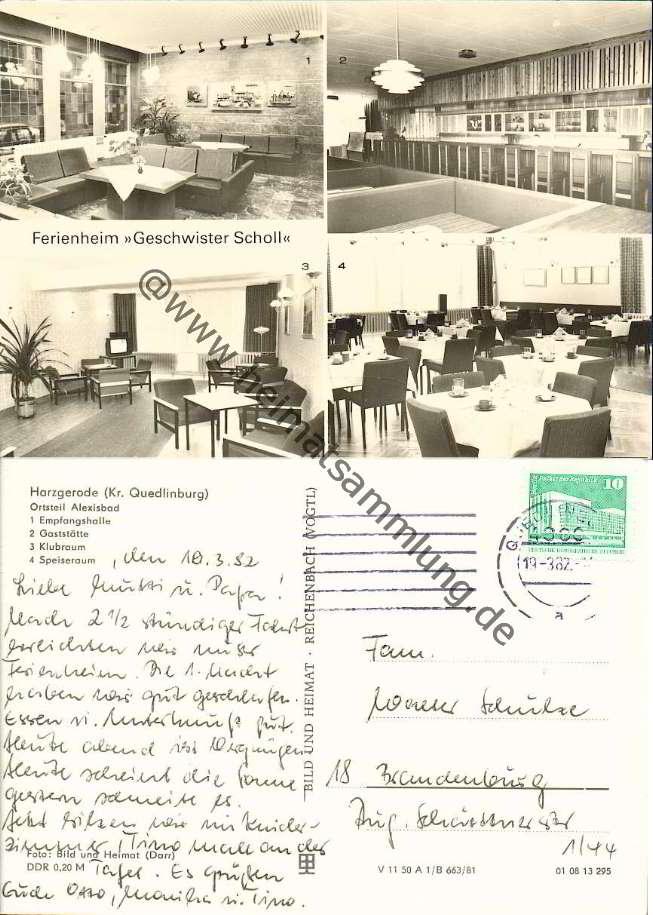 1
2
Ferienheim »Geschwister Scholl«
3
4
@www.heimatsammlung.de
Harzgerode (Kr. Quedlinburg)
Ortsteil Alexisbad
1 Empfangshalle
2 Gaststätte
3 Klubraum
4 Speiseraum
, den 18.3.82
Liebe Mutti u. Papa!
Nach 2 1/2 stündiger Fahrt
erreichten wir unser
Ferienheim. Die 1. Nacht
haben wir gut geschlafen.
Essen u. Unterkunft gut.
Heute abend ist Vergnügen
Heute scheint die Sonne
gestern schneite es.
Jetzt sitzen wir im Kinder-
zimmer, Tino malt an der
Tafel. Es grüßen
Euch Otto, Monika u. Tino.
Foto: Bild und Heimat (Darr)
DDR 0,20 M
BILD UND HEIMAT · REICHENBACH (VOGTL)
10
19.-3.82.
a
Fam.
Schulze
18 Brandenburg
1/44
V 11 50 A 1/B 663/81
01 08 13 295